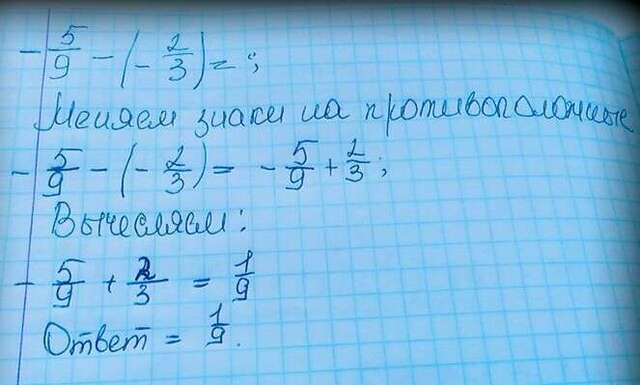 - 5/9 - (- 2/3) = ;
Меняем знаки на противоположные
- 5/9 - (- 2/3) = - 5/9 + 2/3 ;
Вычесляем:
- 5/9 + 2/3 = 1/9
Ответ = 1/9.